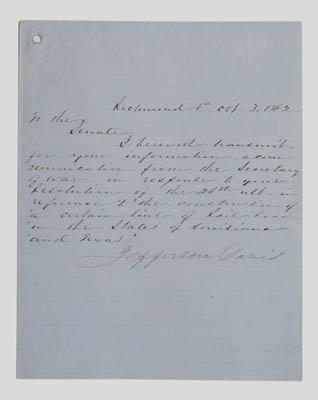 Richmond Va Oct. 3. 1862.
To the
Senate
I herewith transmit
for your information a com
munication from the Secretary
of War in response to your
Resolution of the 26th ult. in
reference to "the construction of
"a certain line of Rail Road
"in the States of Louisiana
"and Texas."
Jefferson Davis